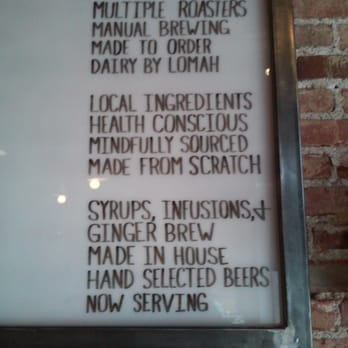 MULTIPLE ROASTERS
MANUAL BREWING
MADE TO ORDER
DAIRY BY LOMAH
LOCAL INGREDIENTS
HEALTH CONSCIOUS
MINDFULLY SOURCED
MADE FROM SCRATCH
SYRUPS, INFUSIONS, &
GINGER BREW
MADE IN HOUSE
HAND SELECTED BEERS
NOW SERVING